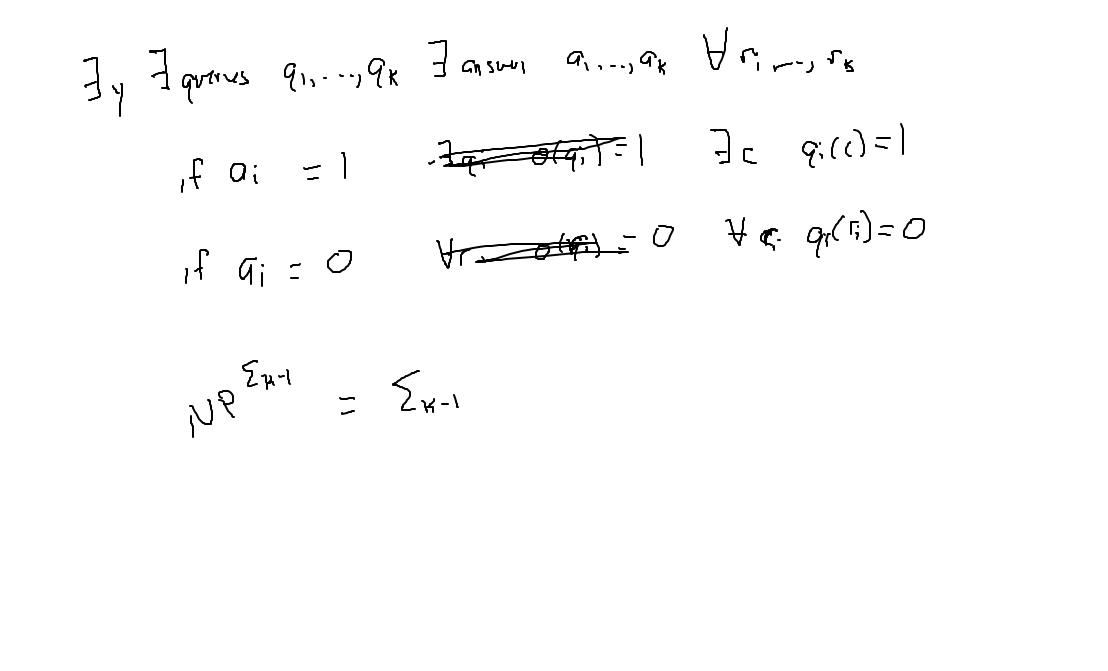 ∃y ∃queries q₁,...,qₖ ∃answer a₁,...,aₖ ∀r₁,...,rₖ
if aᵢ = 1 =1 ∃c qᵢ(c)=1
if aᵢ = 0 =0 ∀rᵢ qᵢ(rᵢ)=0
NP^Σₖ₋₁ = Σₖ₋₁